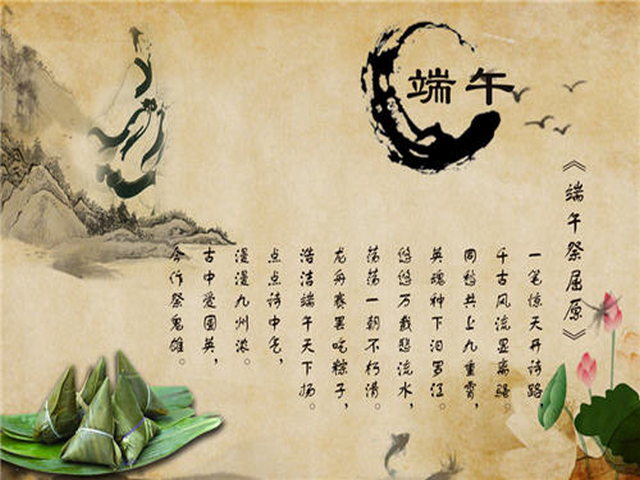 端午
《端午祭屈原》
一笔惊天开诗路，
千古风流显离骚。
同愁共上九重霄，
英魂种下汨罗江。
悠悠万载悲流水，
荡荡一朝不朽滑。
龙舟赛罢吃粽子，
浩洁端午天下扬。
点点诗中气，
漫漫九州浓。
古中爱国英，
今作祭鬼雄。